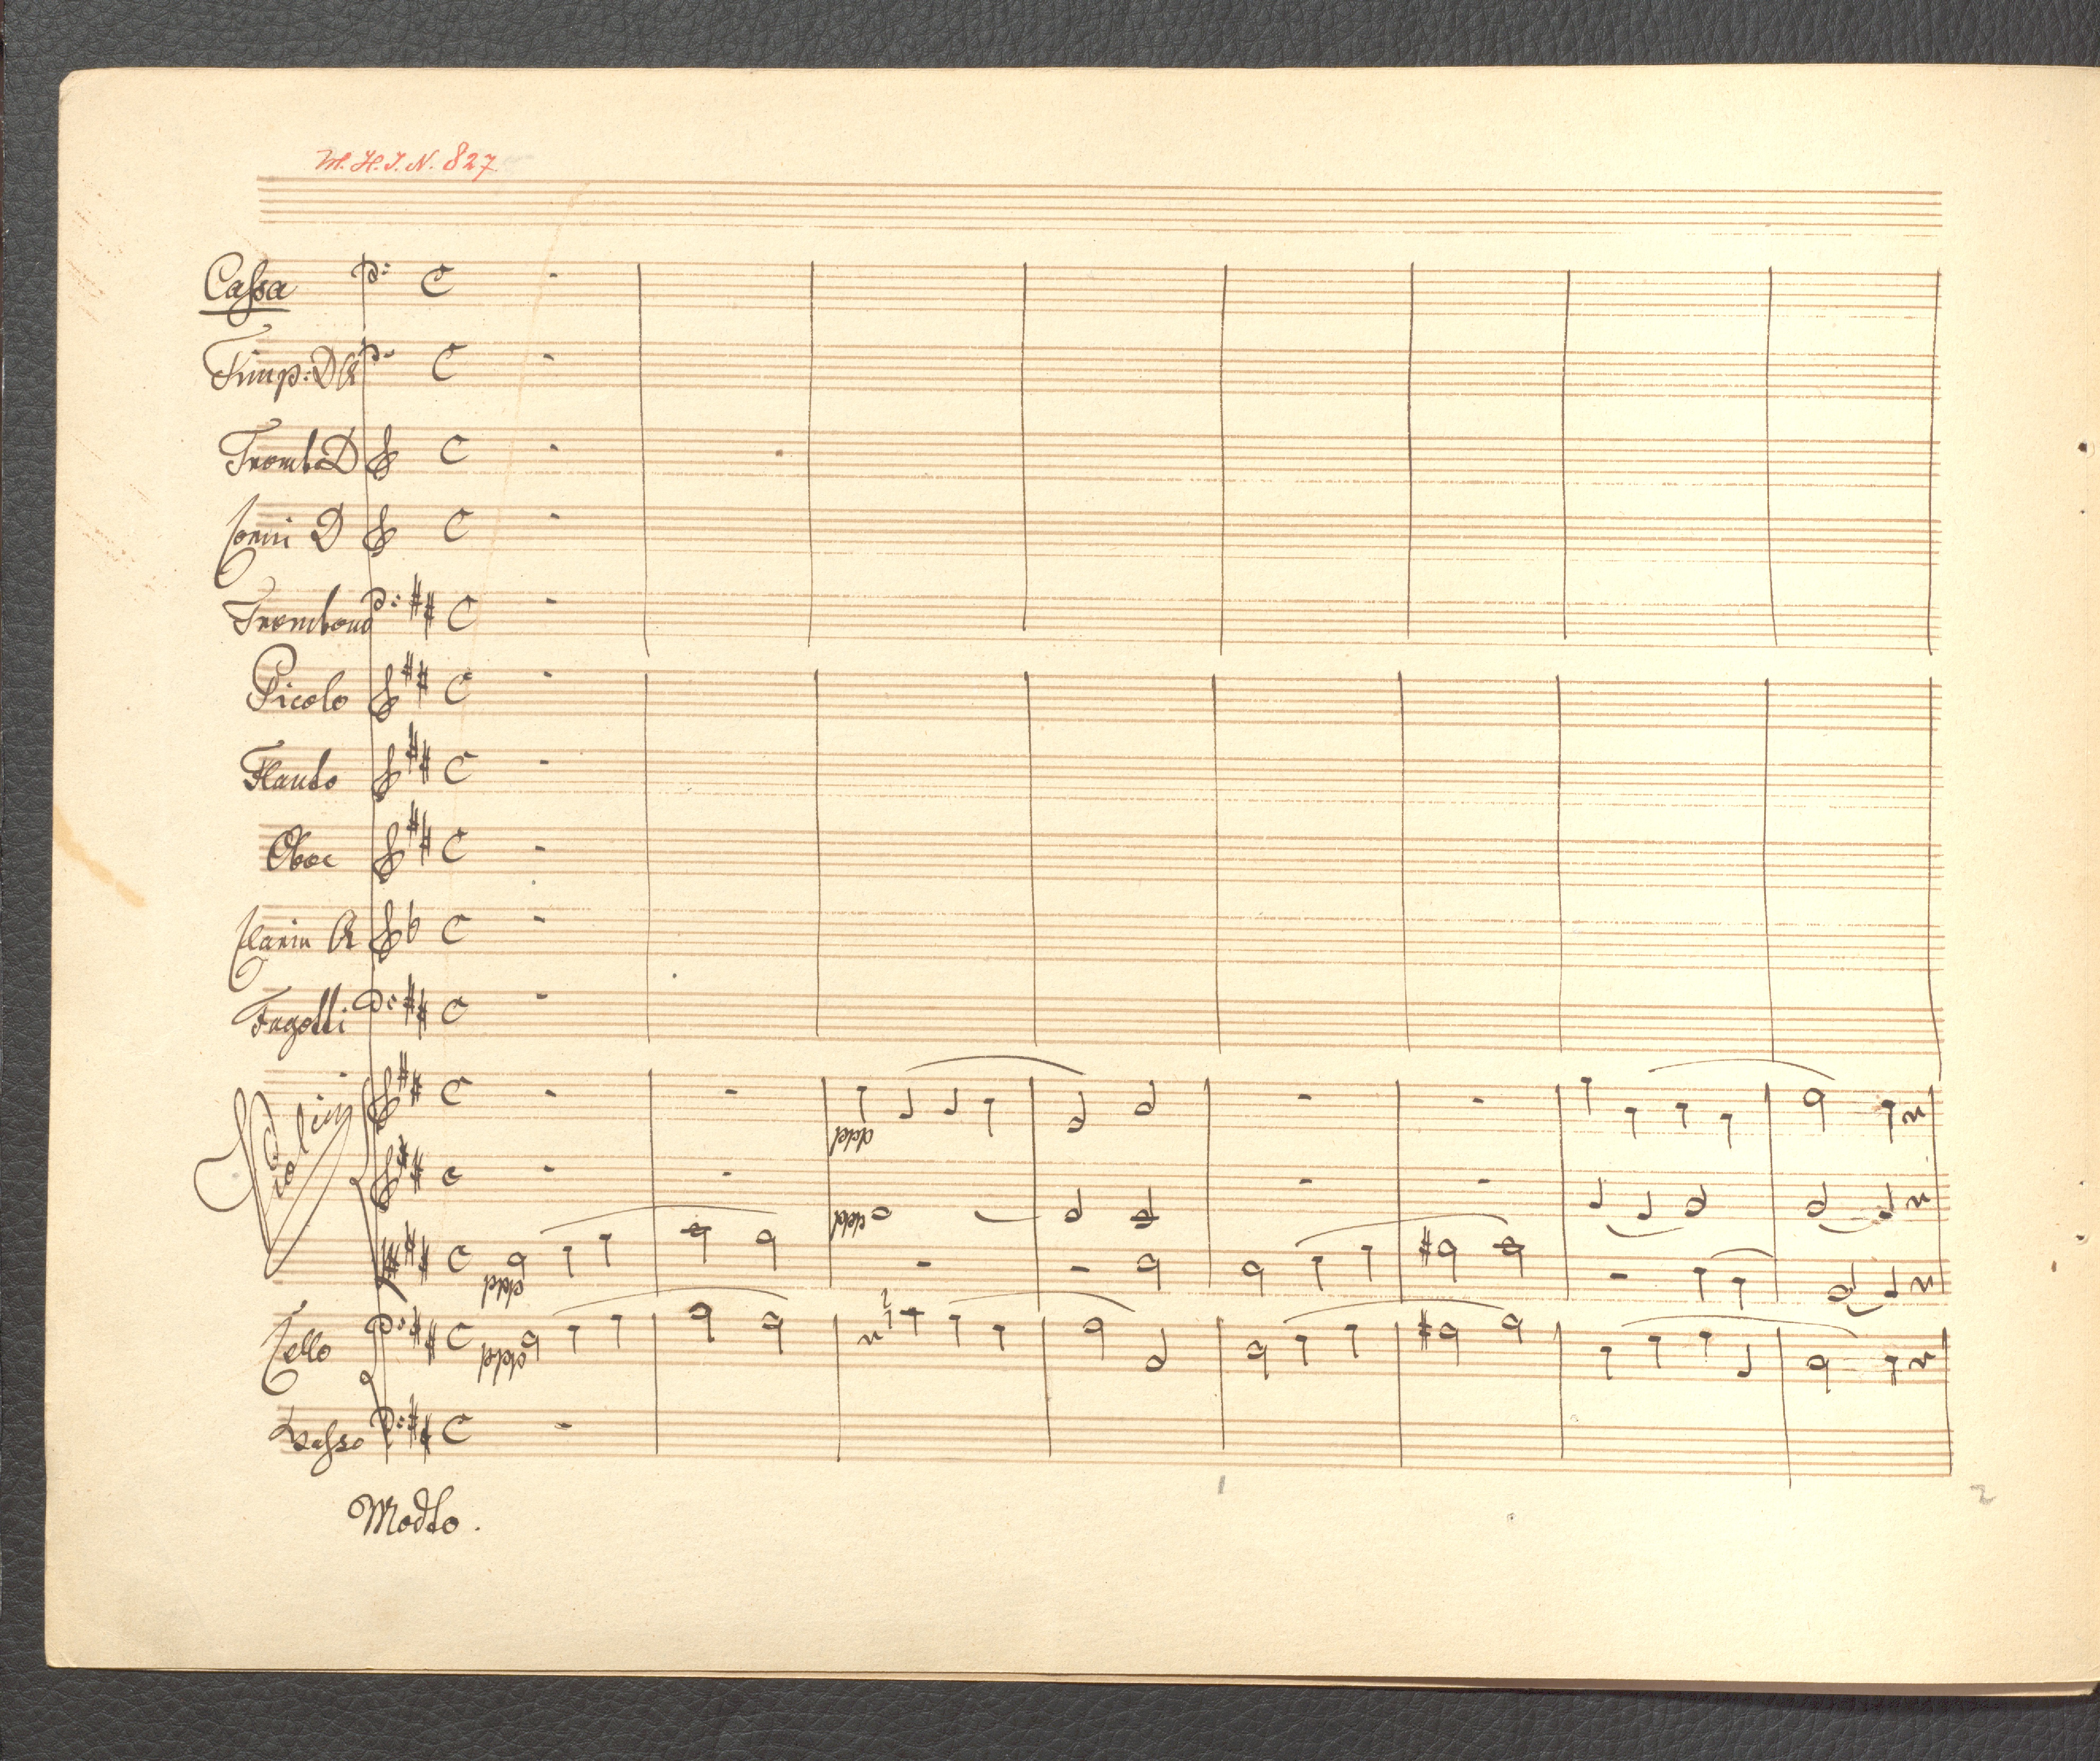 M. H. I. N. 827
Cassa
Timp: D A
Tromb D
Corni D
Trombone
Picolo
Flauto
Oboe
Clarin A
Fagotti
Violini
ppp
ppp
ppp
Cello
ppp
Basso
1
2
Modto.